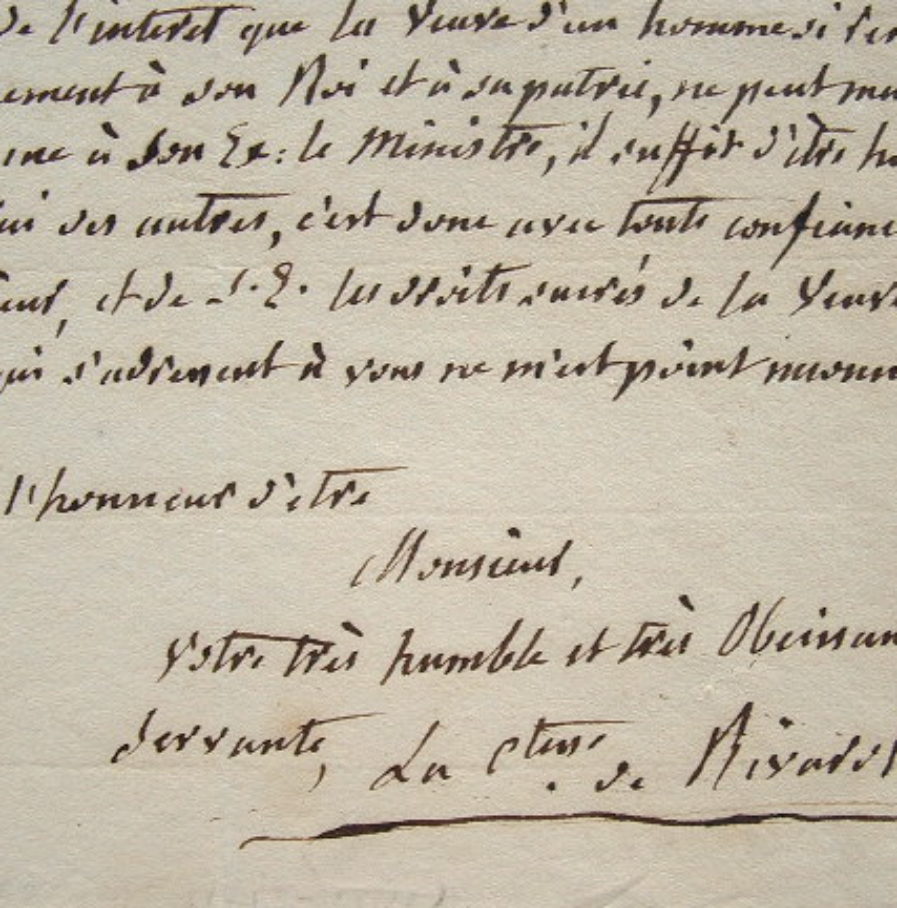 de l'interet que la Veuve d'un homme si
ement à son Roi et à sa patrie, ne peut
à Son Ex: le Ministre, il suffit d'être
des autres, c'est donc avec toute confianc
eur, et de S. E. les droits sacrés de la Veuve
qui s'adressent à vous ne m'est point inconn
l'honneur d'être
Monsieur,
Votre très humble et très Obeissan
Servante, La Ctesse de Rivarol